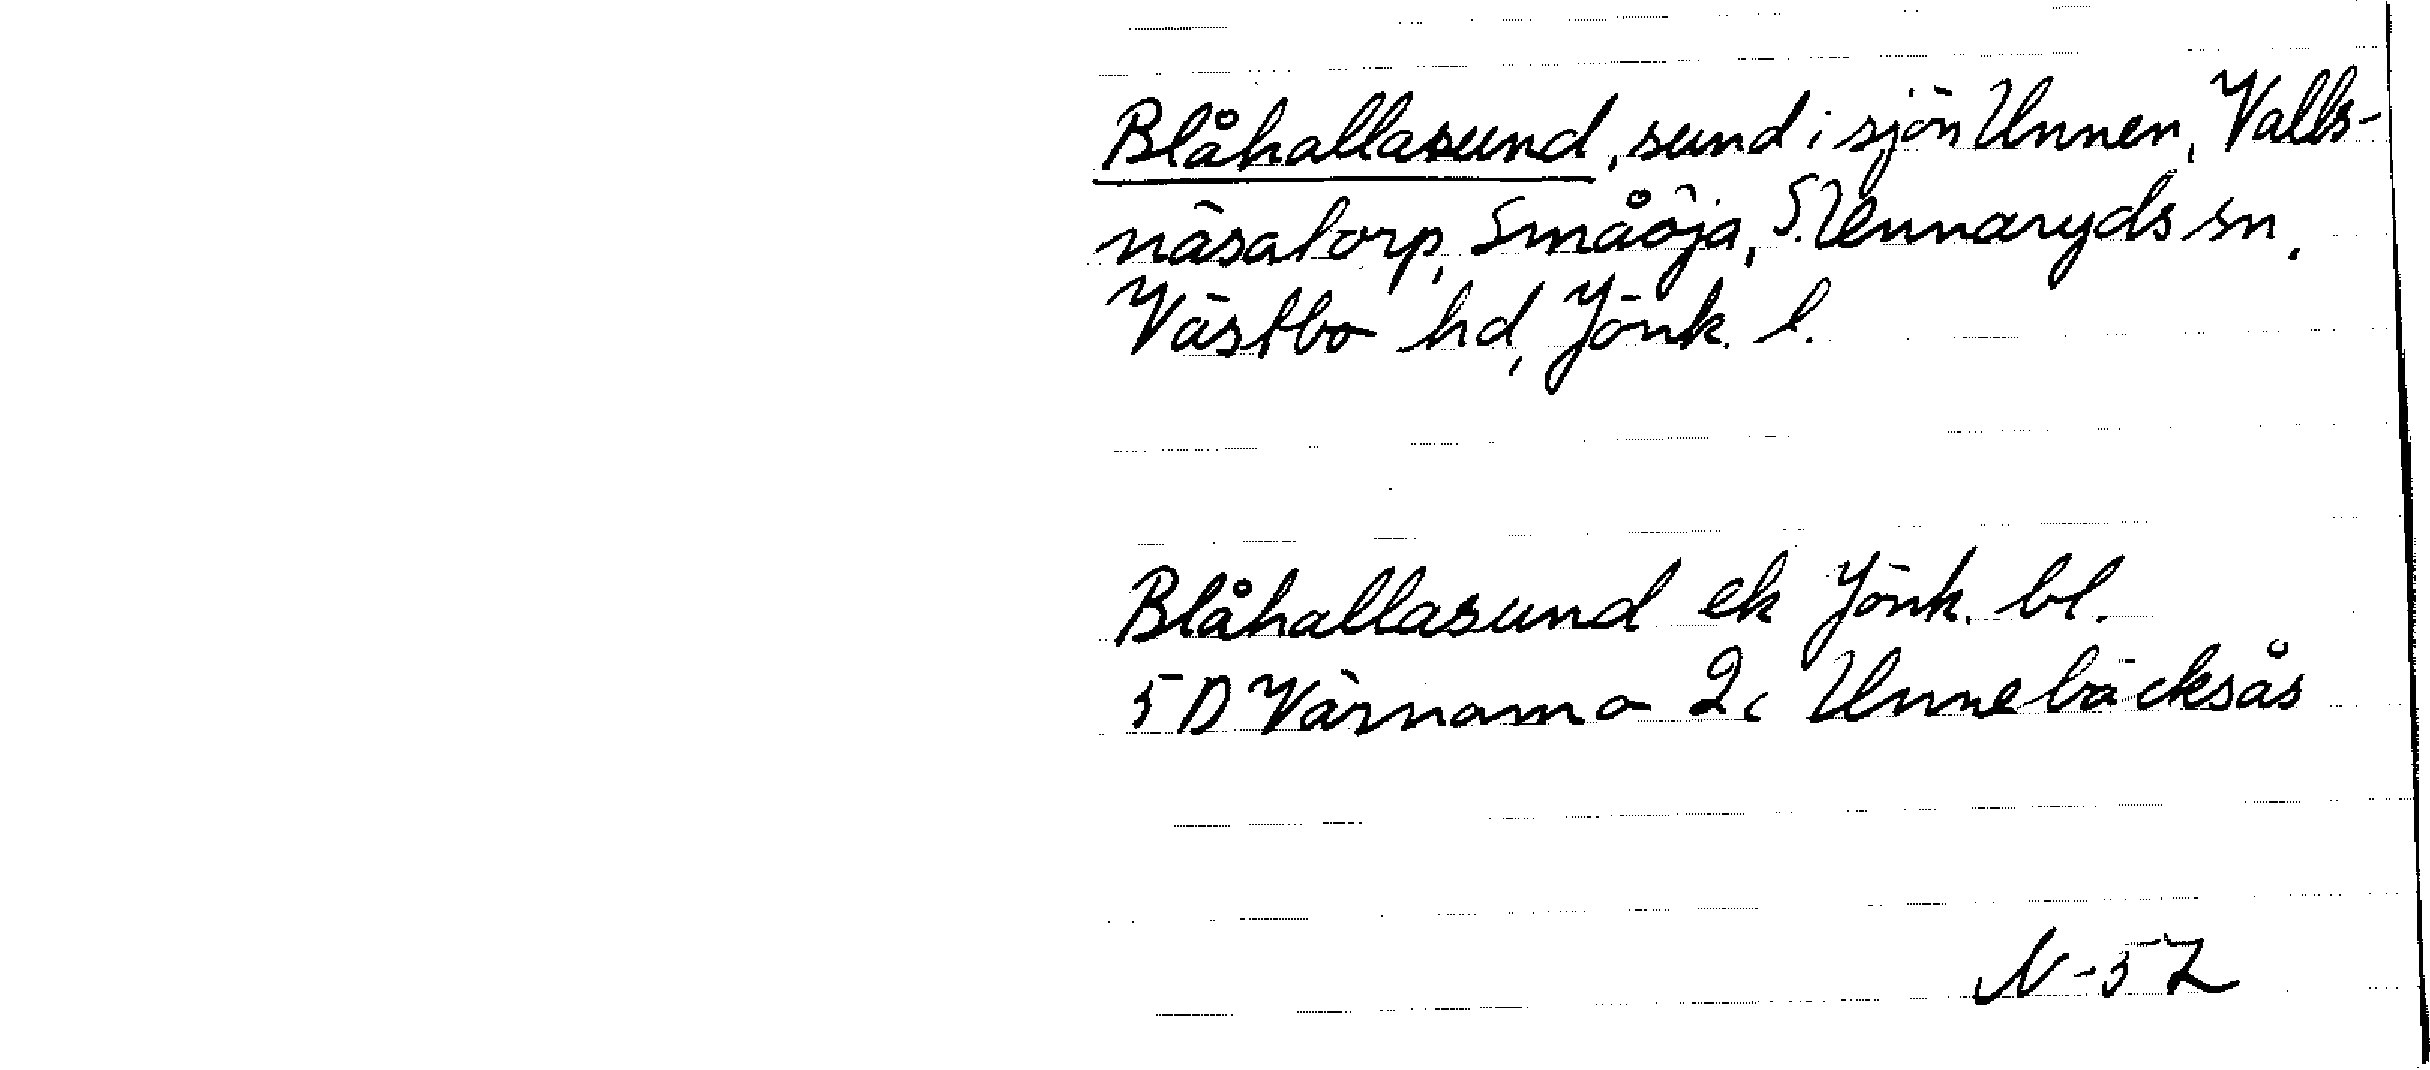 Blåhallasund, sund i sjön Unnen, Valls-
näsatorp, Småöja, S. Unnaryds sn.
Västbo hd, Jönk. l.
Blåhallasund ek Jönk. bl.
5D Värnamo 2c Unnebäcksås
N-57